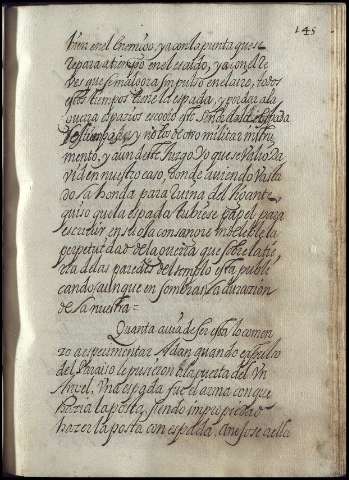 145
bien en el enemigo, ya con la punta que se
repara a tiempo en el escudo, ya con el re
ves que se malogra su impulso en el aire, todos
estos tiempos tiene la espada, y porque a la
guerra espacios escogio este de la espada
y no los de otro militar instru
mento, y aun de este Juzgo Yo que se valio Da
vid en nuestro caso, donde aviendo basta
do la honda para ruina del Gigante
quiso que la espada tubiese papel para
escrivir en si de la con sangre indeleble la
perpetuidad de la guerra que sobre la tie
rra de las paredes del templo esta publi
cando aunque en sombras la duracion
de la nuestra =
Quanta avia de ser esta lo comen
zo a esperimentar Adan quando expulso
del Paraiso le pusieron a la puerta del Un
Angel. Una espada fue el arma con que
hazia la posta, siendo impropiedad
hazer la posta con espada,